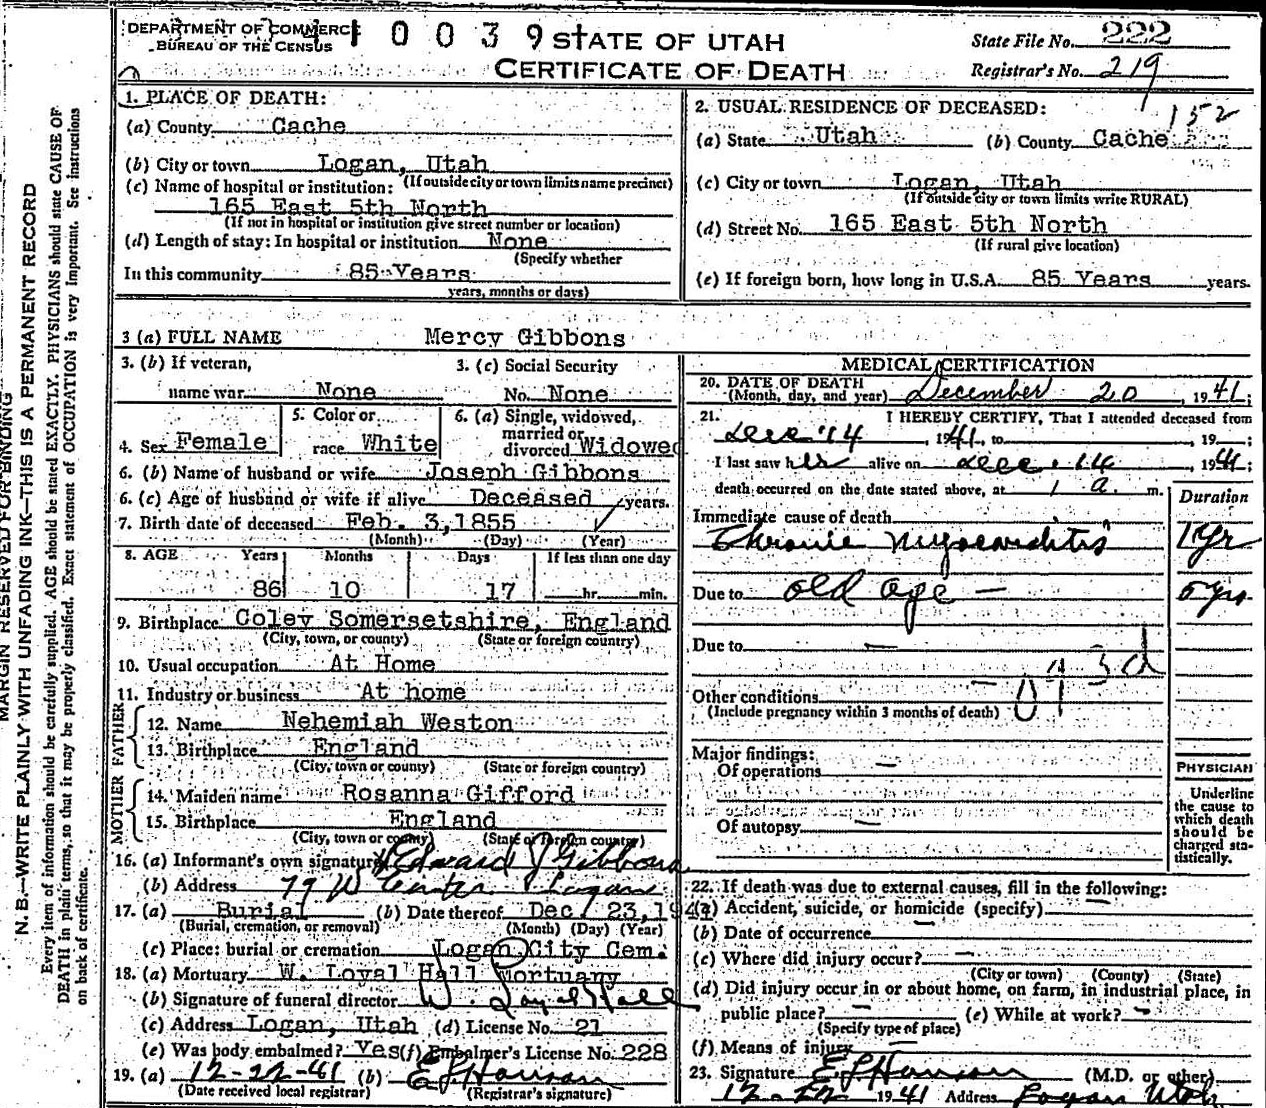 DEPARTMENT OF COMMERCE
BUREAU OF THE CENSUS
41 0 0 3 9 STATE OF UTAH
CERTIFICATE OF DEATH
State File No. 222
Registrar's No. 219
152
MARGIN RESERVED FOR BINDING
N. B—WRITE PLAINLY WITH UNFADING INK—THIS IS A PERMANENT RECORD
Every item of information should be carefully supplied. AGE should be stated EXACTLY. PHYSICIANS should state CAUSE OF
DEATH in plain terms, so that it may be properly classified. Exact statement of OCCUPATION is very important. See instructions
on back of certificate.
1. PLACE OF DEATH:
(a) County Cache
(b) City or town Logan, Utah
(If outside city or town limits name precinct)
(c) Name of hospital or institution:
165 East 5th North
(If not in hospital or institution give street number or location)
(d) Length of stay: In hospital or institution None
(Specify whether
In this community 85 Years
years, months or days)
2. USUAL RESIDENCE OF DECEASED:
(a) State Utah (b) County Cache
(c) City or town Logan, Utah
(If outside city or town limits write RURAL)
(d) Street No. 165 East 5th North
(If rural give location)
(e) If foreign born, how long in U.S.A. 85 Years years.
3 (a) FULL NAME Mercy Gibbons
3. (b) If veteran, name war None
3. (c) Social Security No. None
4. Sex Female
5. Color or race White
6. (a) Single, widowed, married or divorced Widowed
6. (b) Name of husband or wife Joseph Gibbons
6. (c) Age of husband or wife if alive Deceased years.
7. Birth date of deceased Feb. 3, 1855
(Month) (Day) (Year)
8. AGE Years Months Days If less than one day
86 10 17 hr. min.
9. Birthplace Coley Somersetshire, England
(City, town, or county) (State or foreign country)
10. Usual occupation At Home
11. Industry or business At home
FATHER
12. Name Nehemiah Weston
13. Birthplace England
(City, town or county) (State or foreign country)
MOTHER
14. Maiden name Rosanna Gifford
15. Birthplace England
(City, town or county) (State or foreign country)
16. (a) Informant's own signature Edward J Gibbons
(b) Address 79 W Center Logan
17. (a) Burial (b) Date thereof Dec. 23, 1941
(Burial, cremation, or removal) (Month) (Day) (Year)
(c) Place: burial or cremation Logan City Cem.
18. (a) Mortuary W. Loyal Hall Mortuary
(b) Signature of funeral director W. Loyal Hall
(c) Address Logan, Utah (d) License No. 21
(e) Was body embalmed? Yes (f) Embalmer's License No. 228
19. (a) 12-22-41 (b) E L Hanson
(Date received local registrar) (Registrar's signature)
MEDICAL CERTIFICATION
20. DATE OF DEATH
(Month, day, and year) December 20, 1941;
21. I HEREBY CERTIFY, That I attended deceased from
Dec 14 1941, to , 19 ;
I last saw her alive on Dec. 14, 1941;
death occurred on the date stated above, at 1 a. m.
Duration
Immediate cause of death
Chronic Myocarditis 1 yr
Due to old age — 5 yrs
Due to —
93d
Other conditions
(Include pregnancy within 3 months of death)
Major findings:
Of operations —
Of autopsy —
PHYSICIAN
Underline
the cause to
which death
should be
charged sta-
tistically.
22. If death was due to external causes, fill in the following:
(a) Accident, suicide, or homicide (specify) —
(b) Date of occurrence —
(c) Where did injury occur? —
(City or town) (County) (State)
(d) Did injury occur in or about home, on farm, in industrial place, in
public place? — (e) While at work? —
(Specify type of place)
(f) Means of injury —
23. Signature E L Hanson (M.D. or other)
12-22 1941 Address Logan Utah